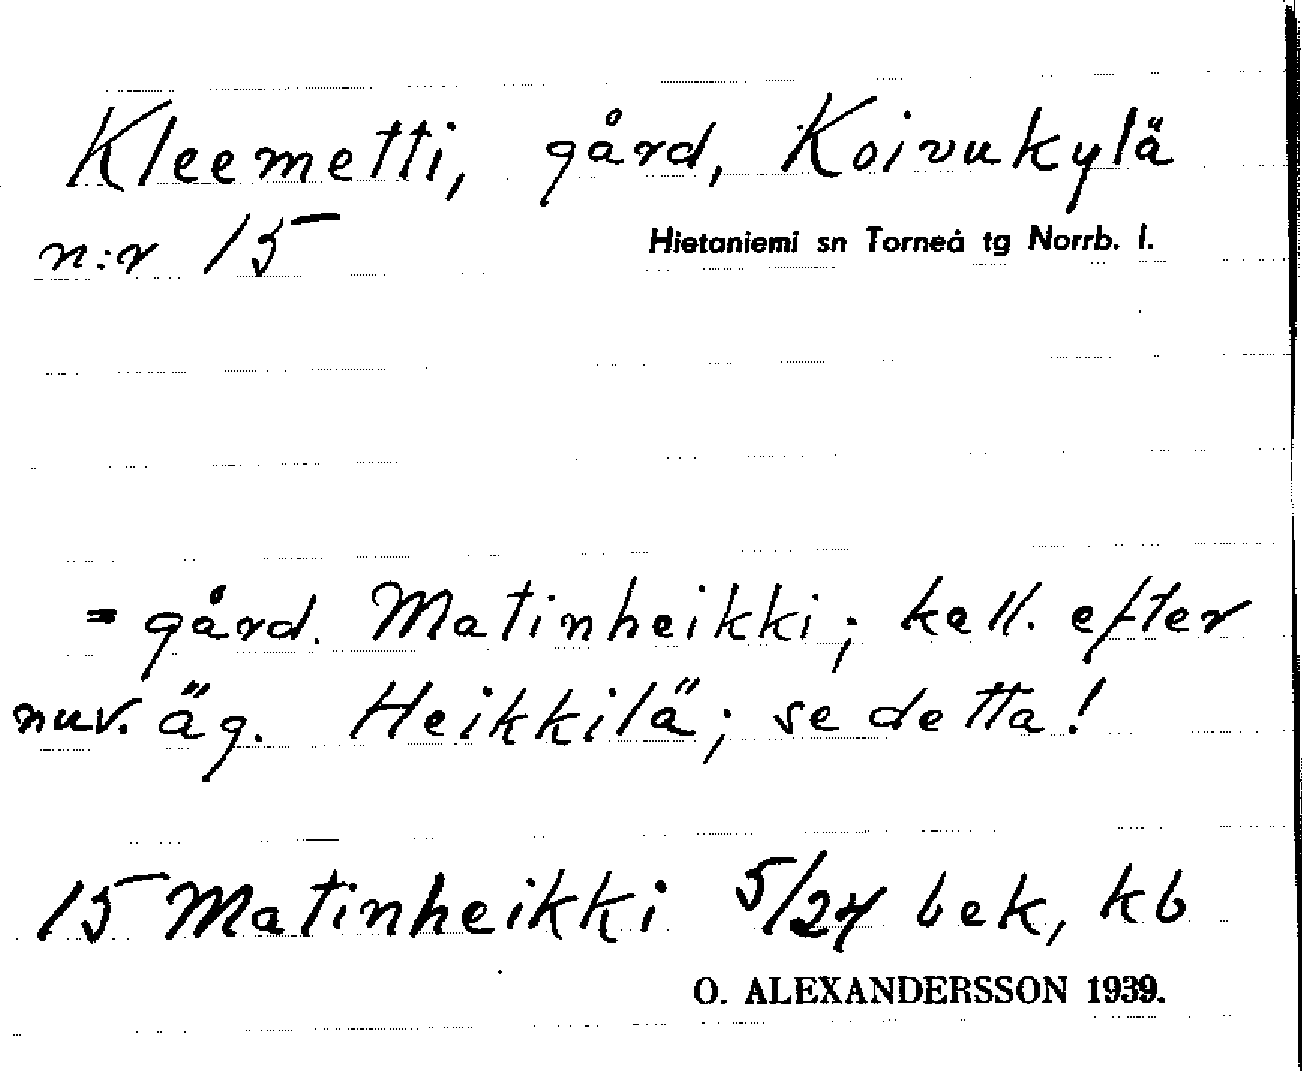 Kleemetti, gård, Koivukylä
n:r 15 Hietaniemi sn Torneå tg Norrb. l.
= gård. Matinheikki; kall. efter
nuv. äg. Heikkilä; se detta!
15 Matinheikki 5/24 bek, kb
O. ALEXANDERSSON 1939.